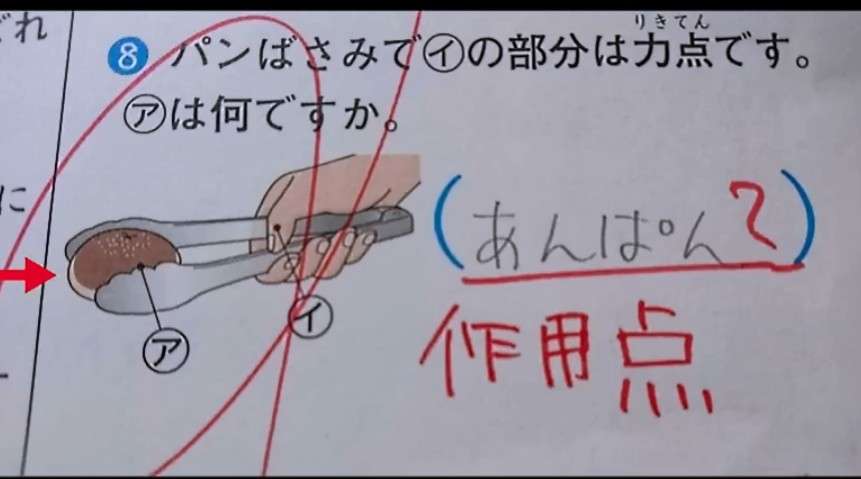 どれ
りきてん
8 パンばさみで㋑の部分は力点です。
㋐は何ですか。
に
(あんぱん?)
作用点
㋐
㋑